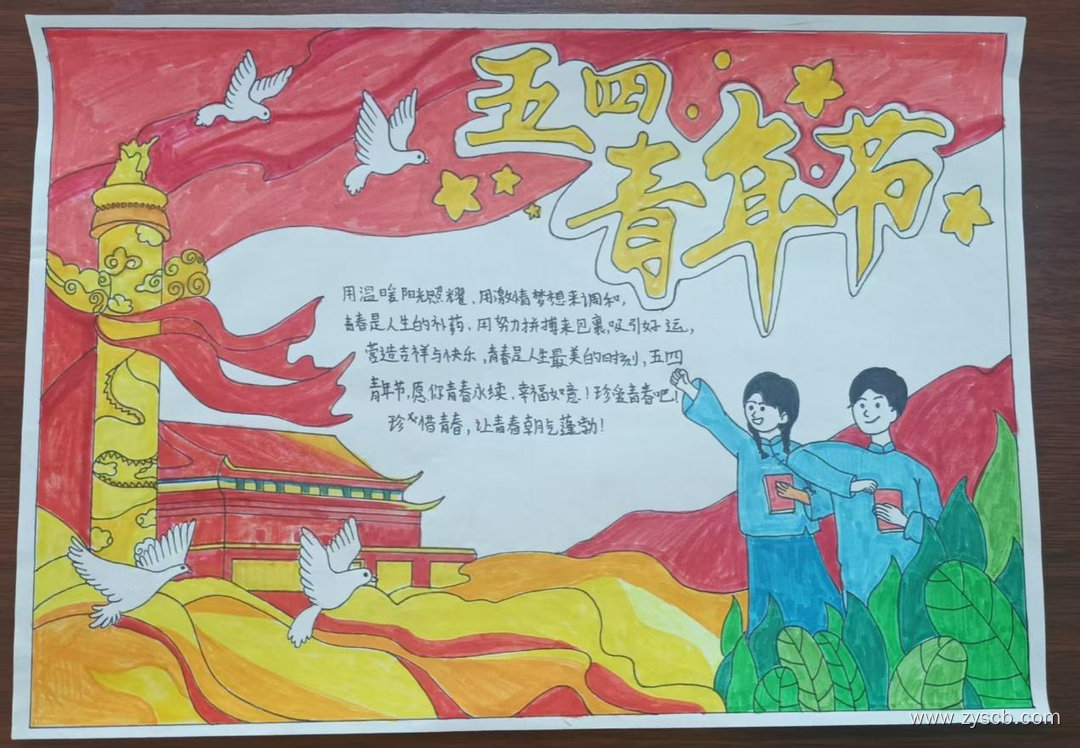 五四
青年节
用温暖阳光照耀，用激情梦想来调和，
青春是人生的补药，用努力拼搏来包裹，吸引好运，
营造吉祥与快乐，青春是人生最美的时刻，五四
青年节，愿你青春永续，幸福如意！珍爱青春吧！
珍惜青春，让青春朝气蓬勃！
www.zyscb.com